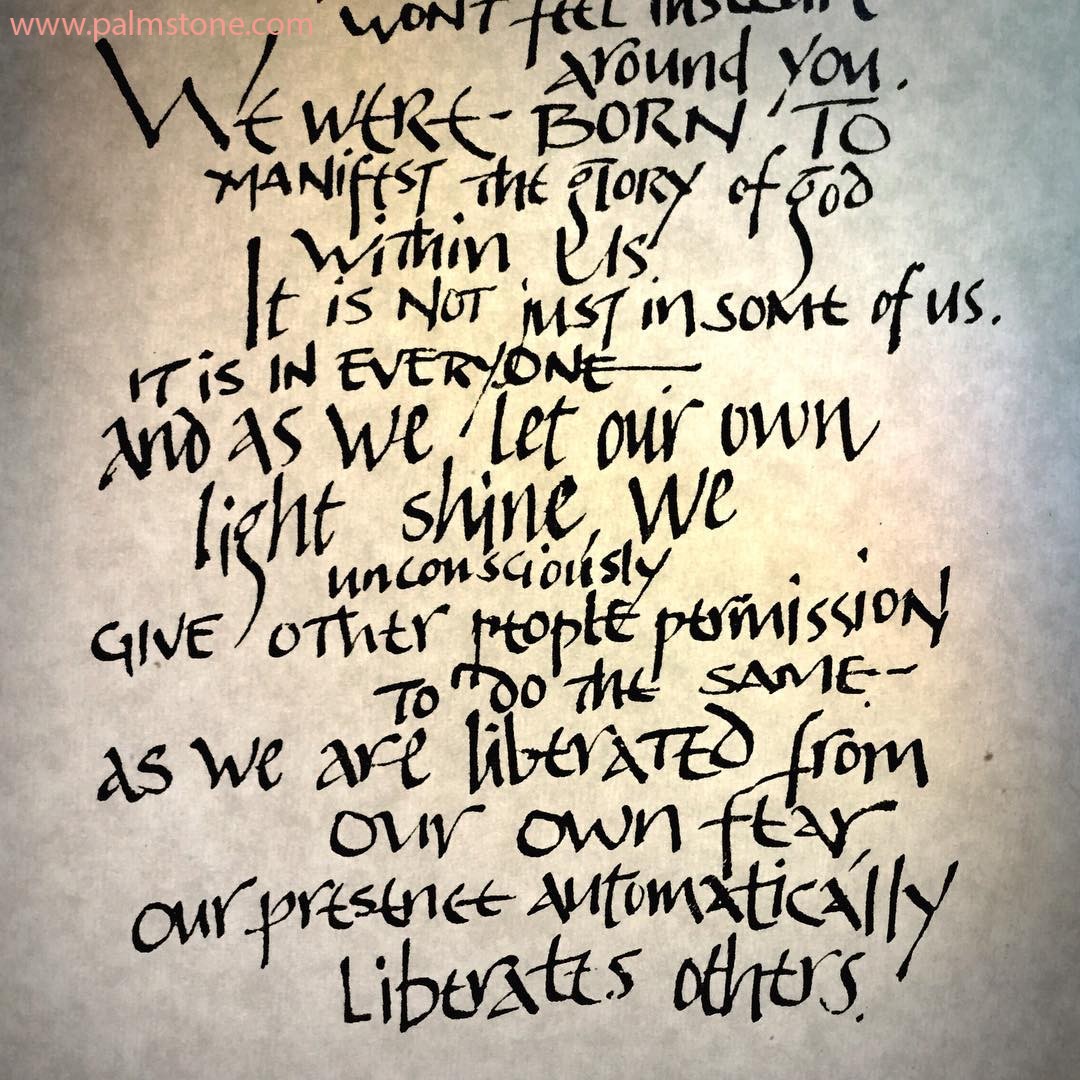 www.palmstone.com
won't feel insecure
around you.
We were- BORN TO
MANifEST the glORY of god
within Us.
It is NOT just in some of us.
IT is IN EVERYONE—
And as we let our own
light shine, we
unconsciously
GIVE other people permission
To do the SAME-
as we are liberated from
our own fear,
our presence automatically
Liberates others.